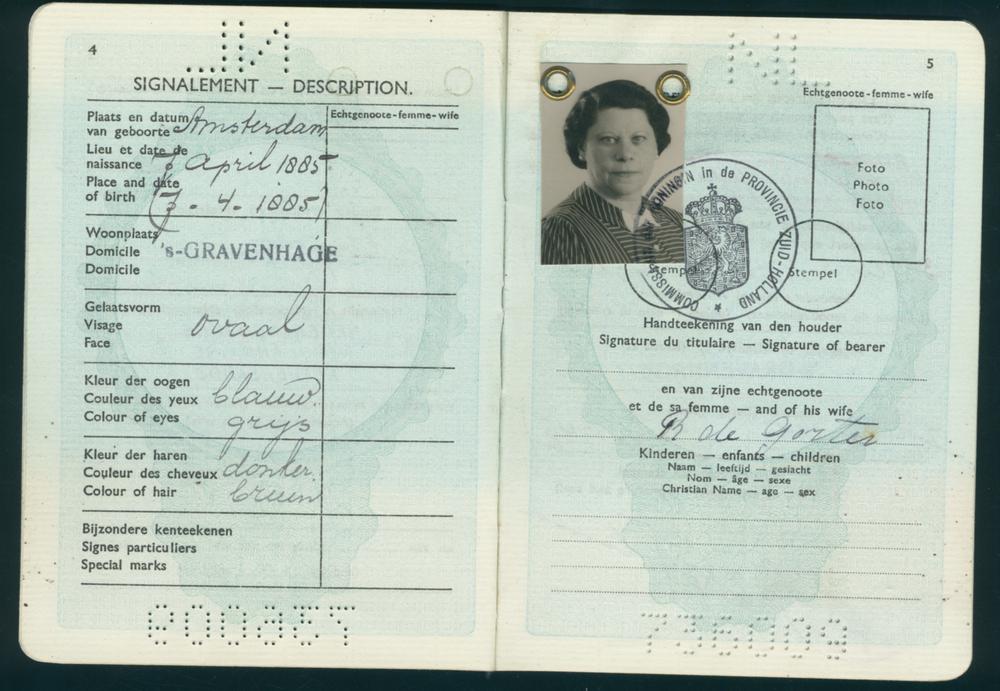 4
SIGNALEMENT — DESCRIPTION.
Plaats en datum
van geboorte
Lieu et date de
naissance
Place and date
of birth
Amsterdam
7 april 1885
(7. - 4. - 1885)
Echtgenoote-femme-wife
Woonplaats
Domicile
Domicile
's-GRAVENHAGE
Gelaatsvorm
Visage
Face
ovaal
Kleur der oogen
Couleur des yeux
Colour of eyes
blauw
grijs
Kleur der haren
Couleur des cheveux
Colour of hair
donker
bruin
Bijzondere kenteekenen
Signes particuliers
Special marks
5
NL
Echtgenoote-femme-wife
Foto
Photo
Foto
KONINGIN in de PROVINCIE ZUID-HOLLAND
COMMISS
Stempel
Stempel
Handteekening van den houder
Signature du titulaire — Signature of bearer
en van zijne echtgenoote
et de sa femme — and of his wife
R de Gorter
Kinderen — enfants — children
Naam — leeftijd — geslacht
Nom — âge — sexe
Christian Name — age — sex